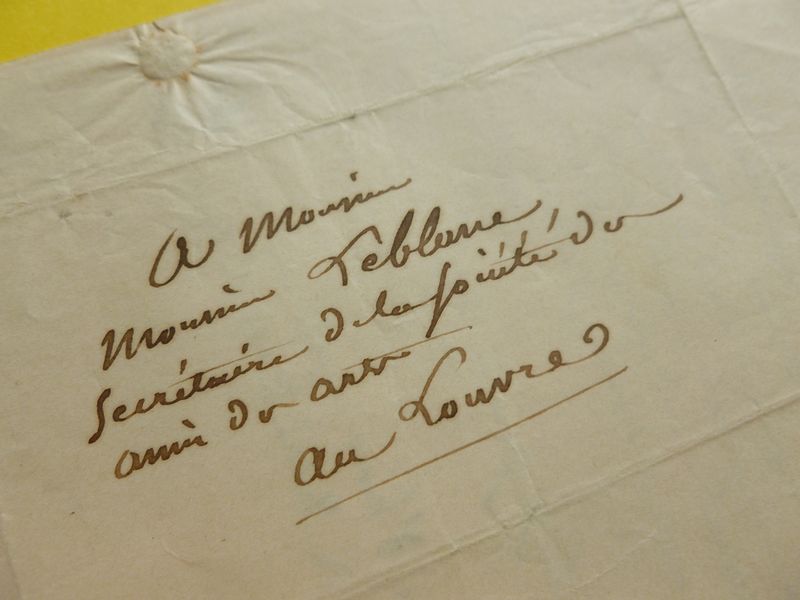 A Monsieur
Monsieur Leblanc,
Secrétaire de la société des
amis des arts
au Louvre